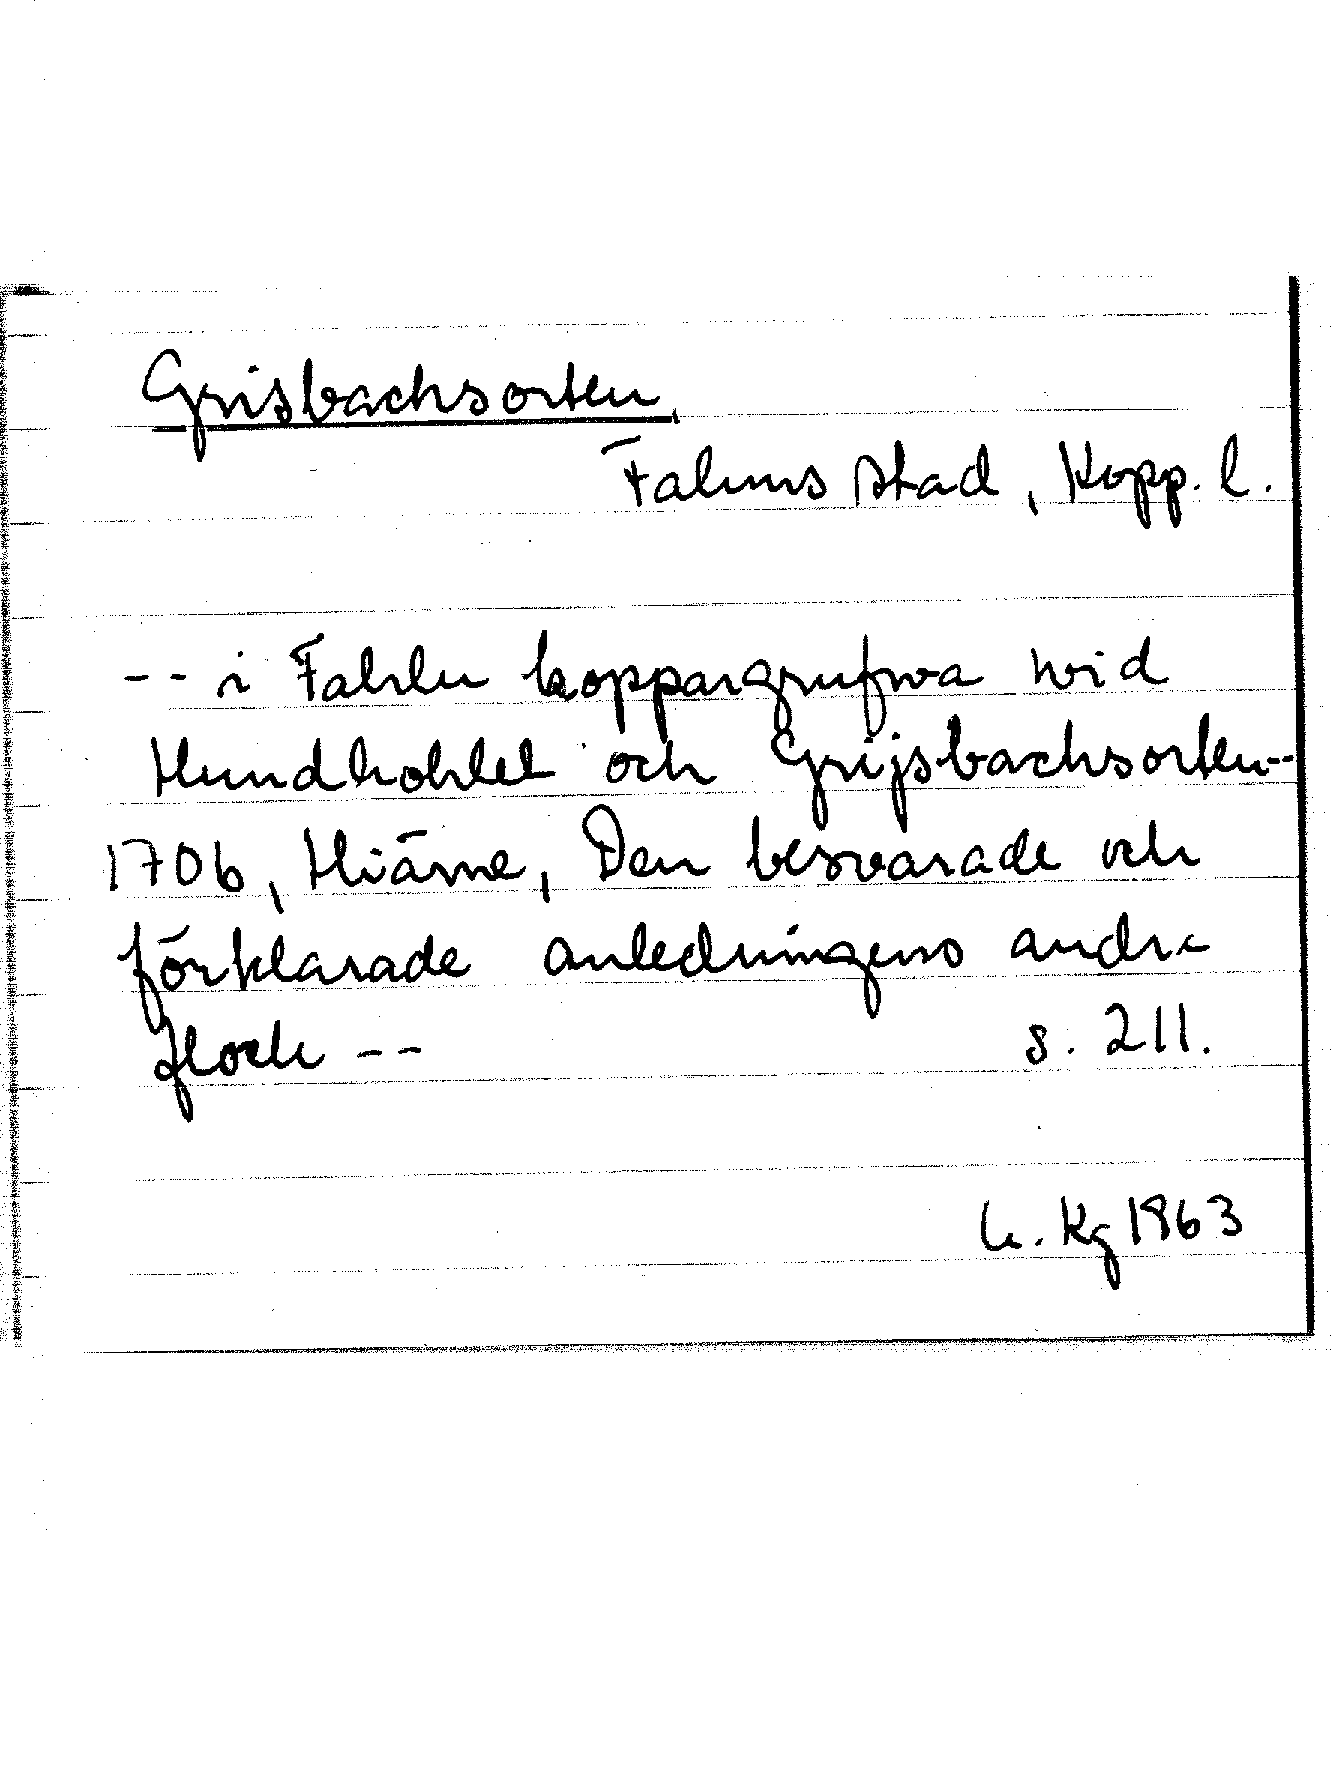 Grisbachsorten.
Faluns stad, Kopp. l.
-- i Fahlu koppargrufwa wid
Hundhohlet och Grijsbachsorten--
1706, Hiärne, Den besvarade och
förklarade anledningens andra
flock -- s. 211.
Kg 1963